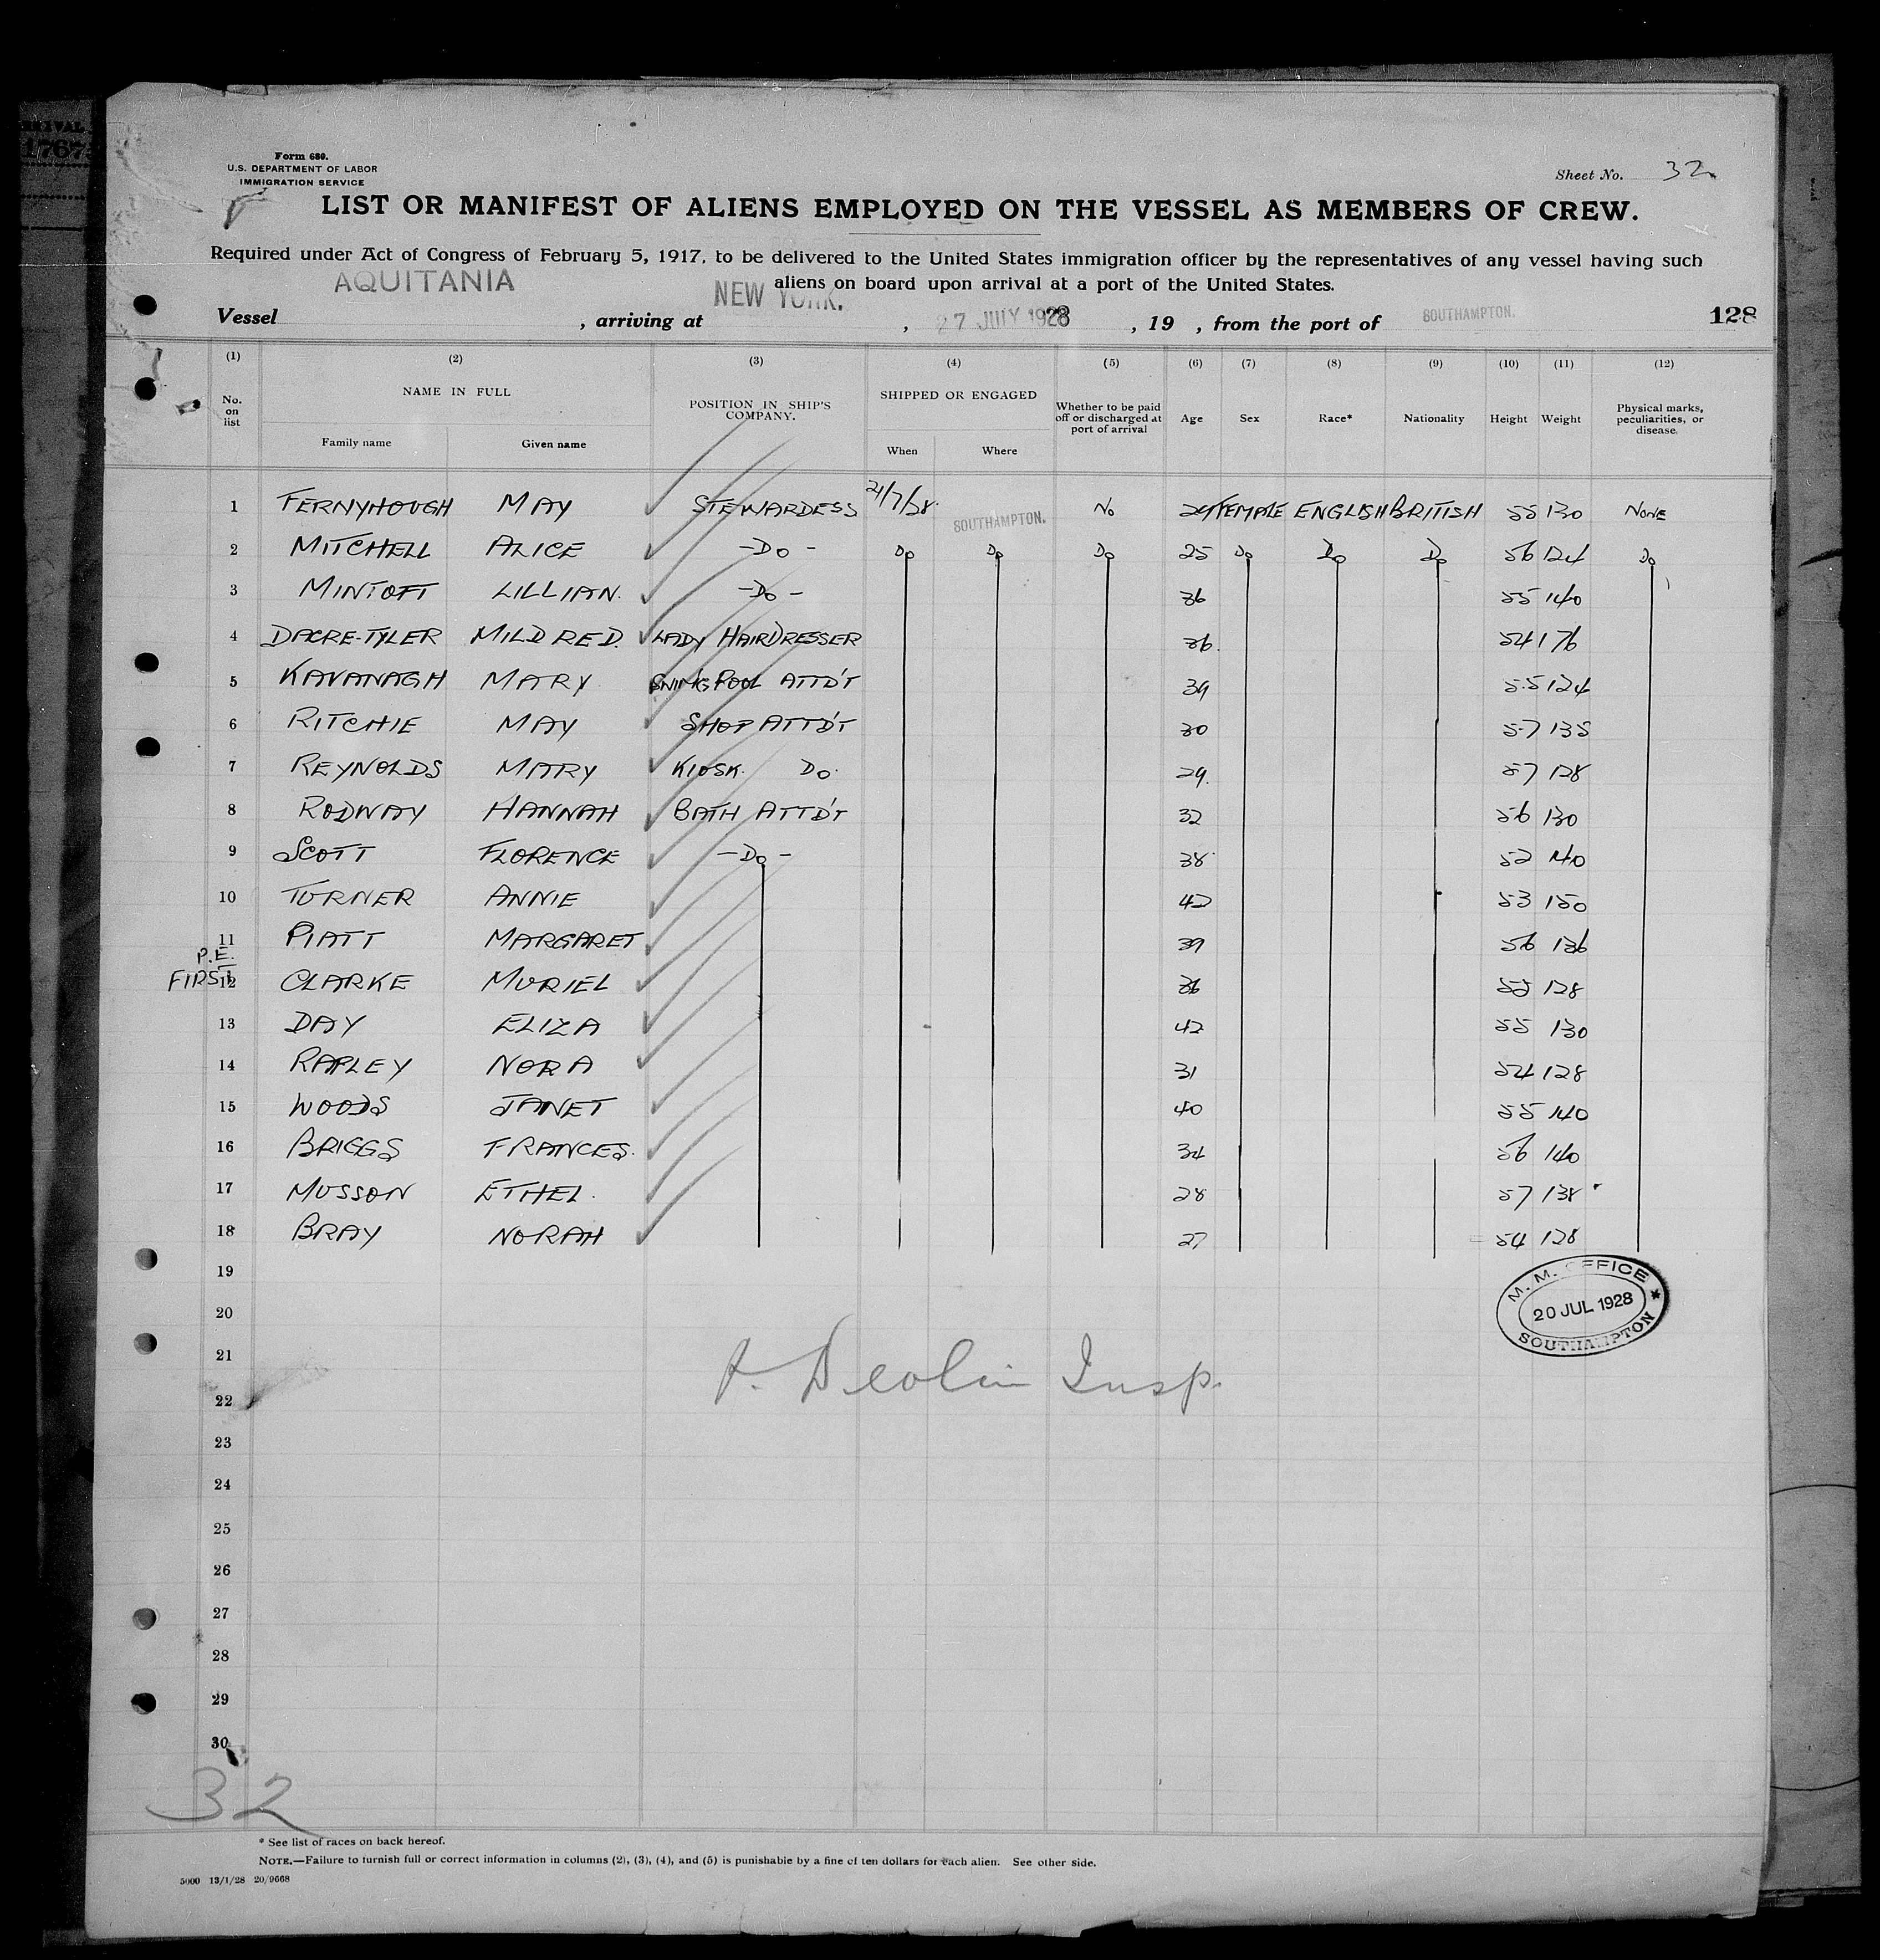 Form 680.
U.S. DEPARTMENT OF LABOR
IMMIGRATION SERVICE
Sheet No. 32
LIST OR MANIFEST OF ALIENS EMPLOYED ON THE VESSEL AS MEMBERS OF CREW.
Required under Act of Congress of February 5, 1917, to be delivered to the United States immigration officer by the representatives of any vessel having such
aliens on board upon arrival at a port of the United States.
Vessel AQUITANIA, arriving at NEW YORK., 27 JULY 1928, 19 , from the port of SOUTHAMPTON. 128
(1) (2) (3) (4) (5) (6) (7) (8) (9) (10) (11) (12)
No. on list NAME IN FULL POSITION IN SHIP'S COMPANY. SHIPPED OR ENGAGED Whether to be paid off or discharged at port of arrival Age Sex Race* Nationality Height Weight Physical marks, peculiarities, or disease.
Family name Given name When Where
1 FERNYHOUGH MAY STEWARDESS 21/7/28. SOUTHAMPTON. No FEMALE ENGLISH BRITISH 55 130 NONE
2 MITCHELL ALICE -Do- Do Do Do 25 Do Do Do 56 124 Do
3 MINTOFT LILLIAN. -Do- 36 55 140
4 DACRE-TYLER MILDRED. LADY HAIRDRESSER 36. 54 176
5 KAVANAGH MARY SWIMG POOL ATTD'T 39 5.5 124
6 RITCHIE MAY SHOP ATTD'T 30 5.7 135
7 REYNOLDS MARY KIOSK. Do. 29. 57 128
8 RODWAY HANNAH BATH ATTD'T 32 56 130
9 SCOTT FLORENCE -Do- 38 52 140
10 TURNER ANNIE 42 53 150
11 PIATT MARGARET 39 56 136
P.E.
FIRST
12 CLARKE MURIEL 36 55 128
13 DAY ELIZA 42 55 130
14 RAPLEY NORA 31 54 128
15 WOODS JANET 40 55 140
16 BRIGGS FRANCES. 34 56 140
17 MUSSON ETHEL. 28 57 138
18 BRAY NORAH 27 54 128
19
M. M. OFFICE
20 JUL 1928
SOUTHAMPTON
20
21
Insp.
22
23
24
25
26
27
28
29
30
32
* See list of races on back hereof.
NOTE.—Failure to furnish full or correct information in columns (2), (3), (4), and (5) is punishable by a fine of ten dollars for each alien. See other side.
5000 13/1/28 20/9668